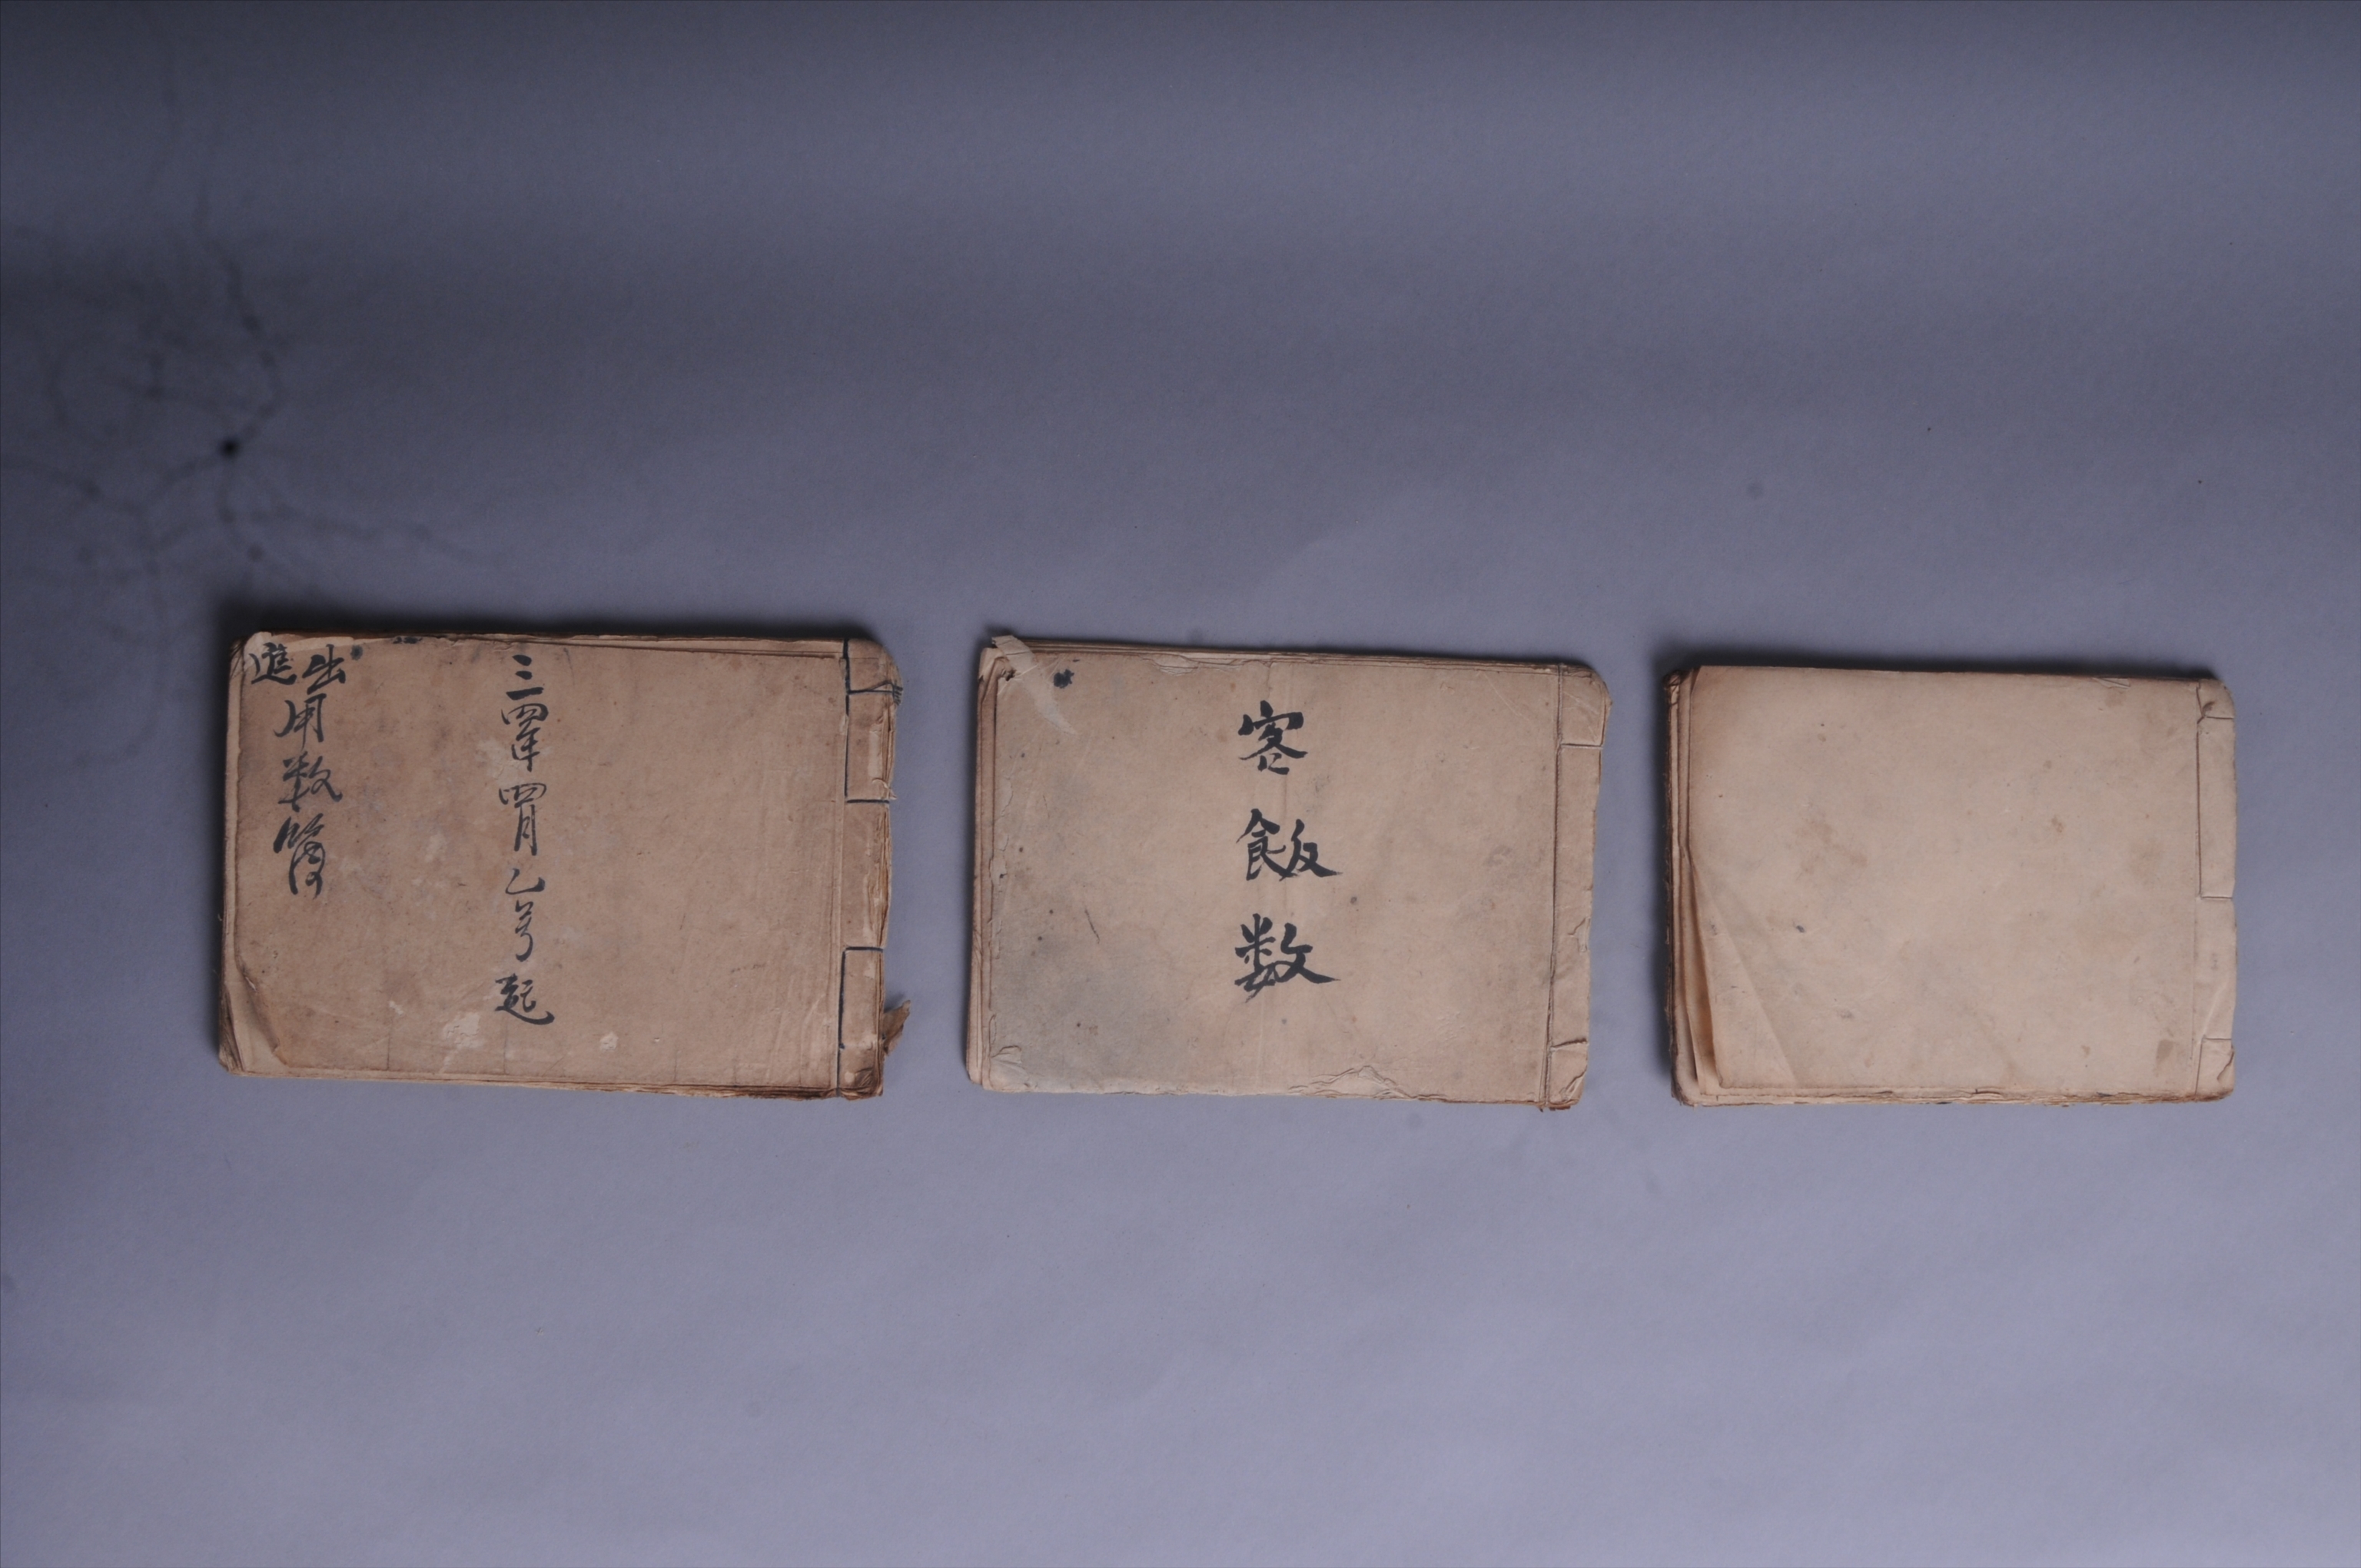 三四年四月乙号起
出進用数簿
客飯数